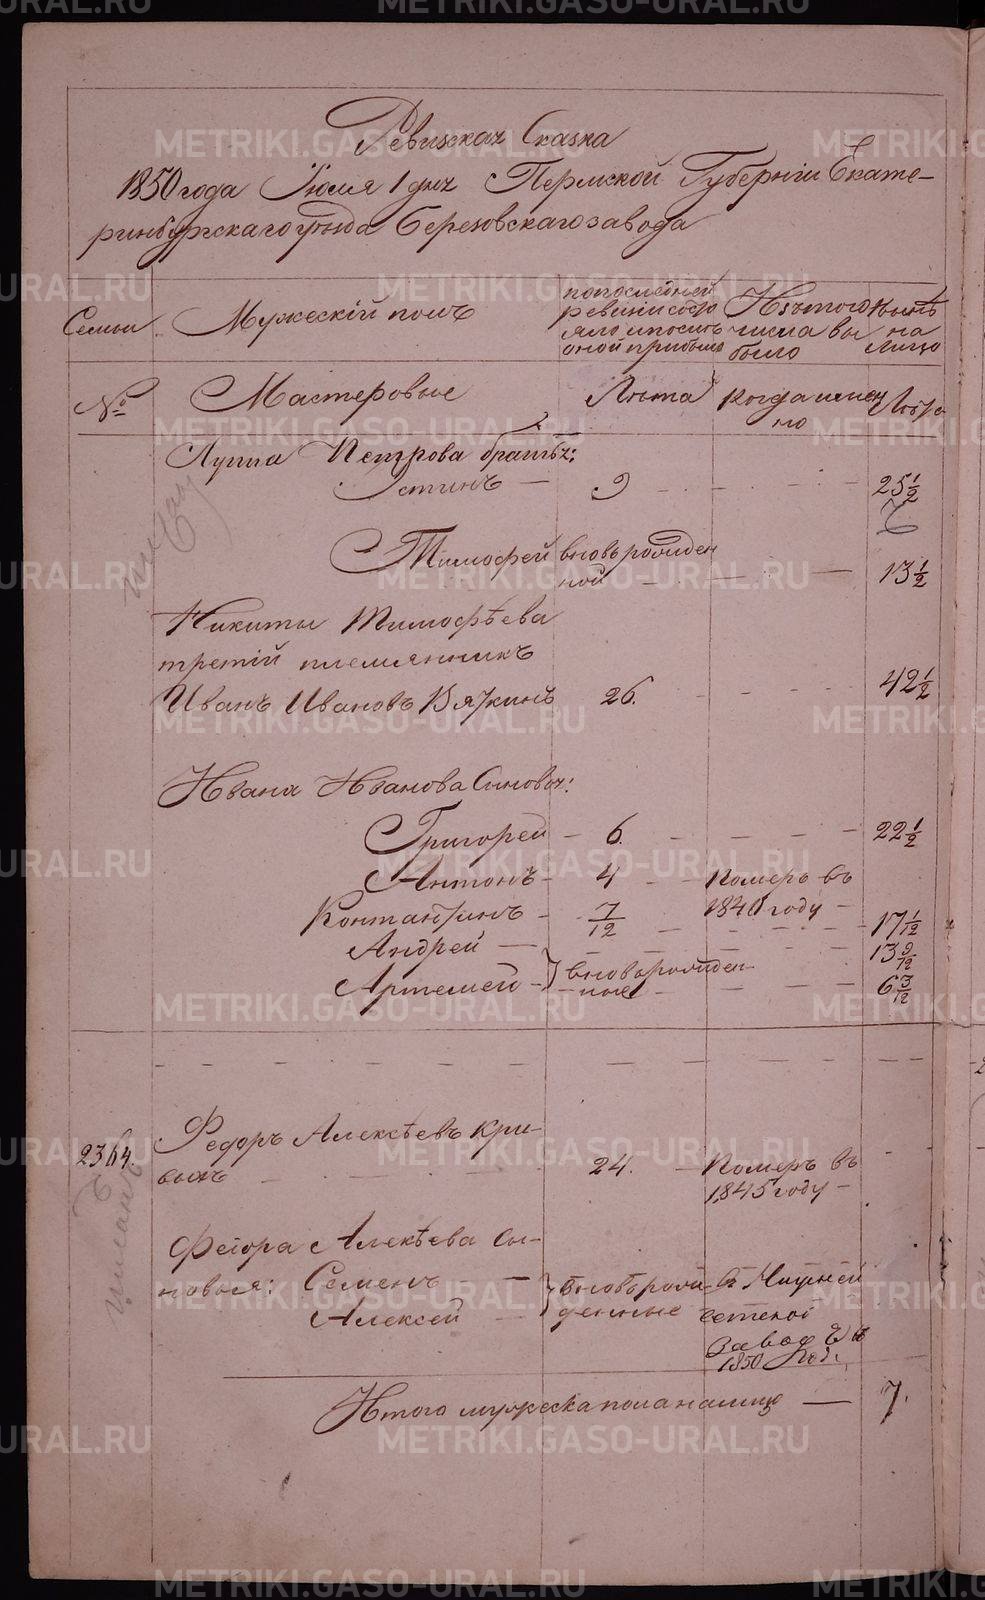 Ревизская Сказка
1850 года Июля 1 дня Пермской Губернiи Екате-
ринбургскаго уезда Березовскаго завода
Семьи
Мужескiй полъ
попоследней ревизiи состояло ипосить оной прибыло
Изътого числа выбыло
Нынѣ на лицо
№
Мастеровые
Лѣта
когда имянно
Лѣта
Луппа Петрова братья:
Устинъ — 9 - - - - 25½
Тимофей вновь рожден
ной — — — 13½
Никиты Тимофѣева
третiй племянникъ
Иванъ Ивановъ Вяткинъ 26. - - - - 42½
Ивана Иванова Сыновья:
Григорей - 6. - - - - 22½
Антонъ - 4 - - Померъ въ
1840 году -
Контантинъ - 7/12 - - - - 17 1/12
Андрей — - - - 13 9/12
Артемей - } вноворожден-
ные - - - 6 3/12
2364.
Федоръ Алексѣевъ Кри-
выхъ - - - 24. - Померъ въ
1845 году -
Федора Алексѣева Сы-
новья: Семенъ —
Алексей —
} вноворож-
денные
въ
завод
1850
Итого мужеска пола налицо — 7.
METRIKI.GASO-URAL.RU